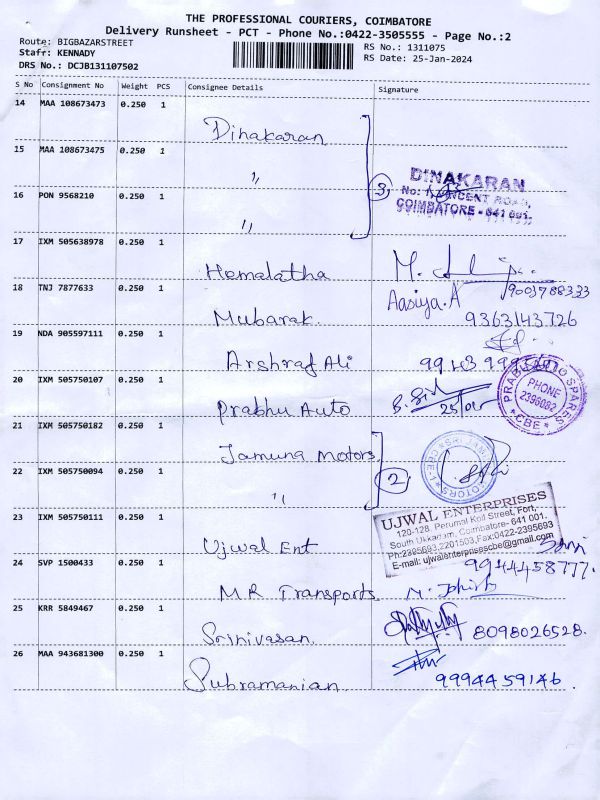 THE PROFESSIONAL COURIERS, COIMBATORE
Delivery Runsheet - PCT - Phone No.:0422-3505555 - Page No.:2
Route: BIGBAZARSTREET
RS No.: 1311075
Staff: KENNADY
RS Date: 25-Jan-2024
DRS No.: DCJB131107502
S No Consignment No Weight PCS Consignee Details Signature
14 MAA 108673473 0.250 1 Dinakaran
15 MAA 108673475 0.250 1 ,,
3
DINAKARAN
16 PON 9568210 0.250 1 ,,
COIMBATORE - 641 001.
17 IXM 505638978 0.250 1 Hemalatha
18 TNJ 7877633 0.250 1 Mubarak
Aasiya.A
9363143726
19 NDA 905597111 0.250 1 Arshraf Ali
20 IXM 505750107 0.250 1 Prabhu Auto
25/01
PHONE
2396082
CBE
21 IXM 505750182 0.250 1 Jamuna Motors
22 IXM 505750094 0.250 1 ,,
2
23 IXM 505750111 0.250 1 Ujwal Ent
UJWAL ENTERPRISES
120-128, Perumal Koil Street, Fort,
South Ukkadam, Coimbatore- 641 001.
Ph:2395693,2201503,Fax:0422-2395693
E-mail: ujwalenterprisescbe@gmail.com
24 SVP 1500433 0.250 1 M.R Transports
9944458777.
25 KRR 5849467 0.250 1 Srinivasan
8098026528.
26 MAA 943681300 0.250 1 Subramanian
9994459146.